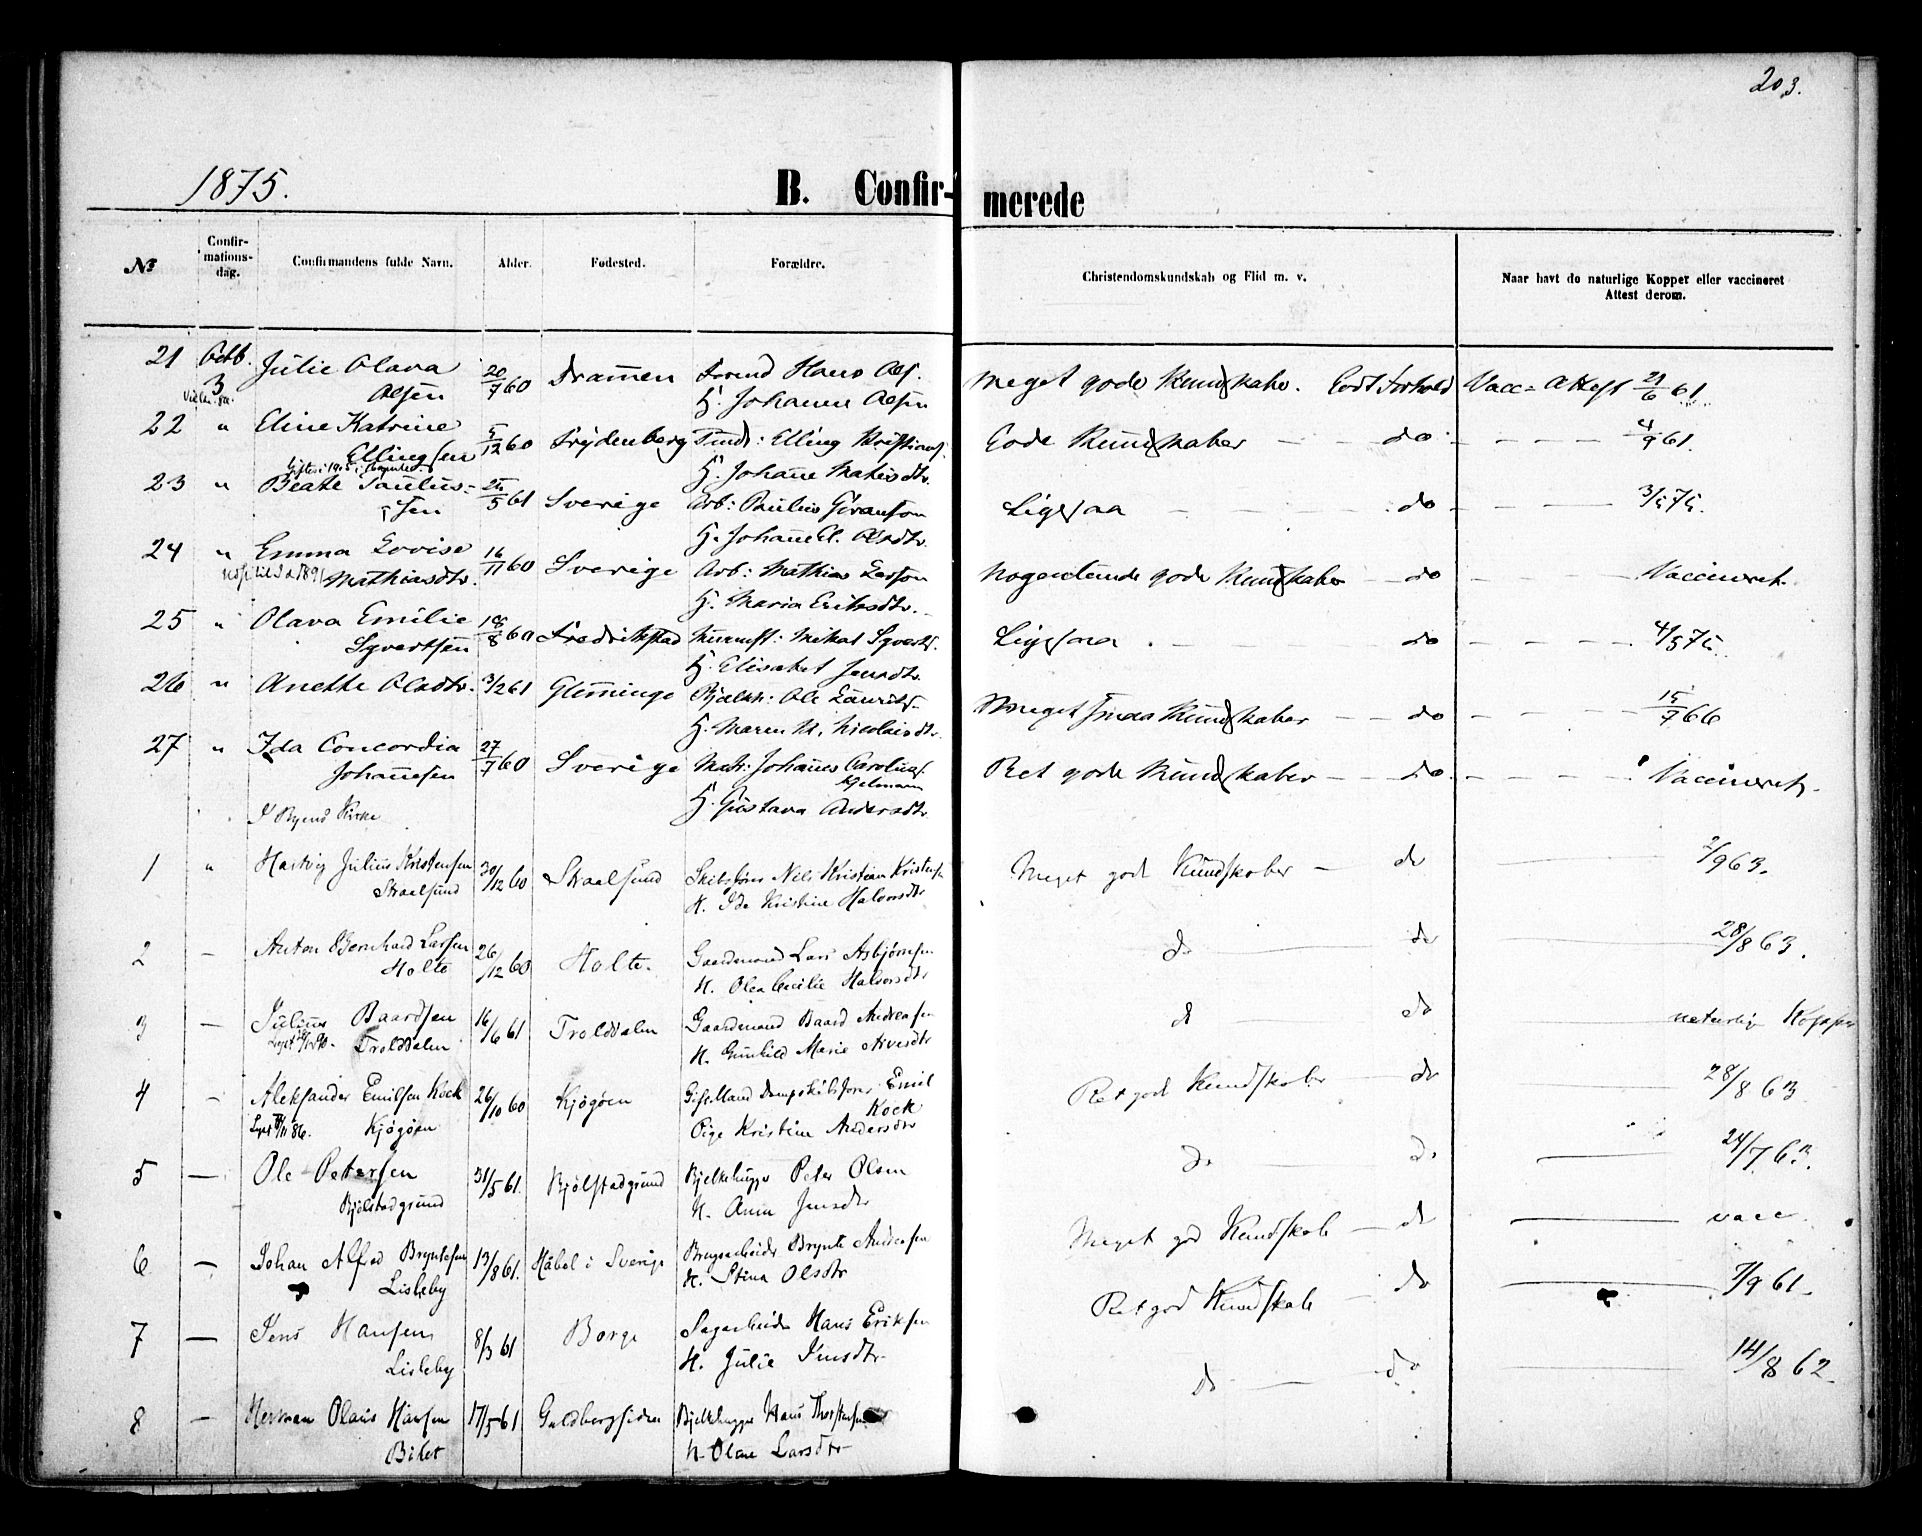 203.
1875.
B. Confir-
merede
№
Confir-
mations-
dag.
Confirmandens fulde Navn.
Alder.
Fødested.
Forældre.
Christendomskundskab og Flid m. v.
Naar havt de naturlige Kopper eller vaccineret
Attest derom.
21 Octb. Julie Olava 20/7 60 Dramen Hans Ols.
3 Olsen H. Johanne Olsen
Meget gode Kundskaber. Godt Forhold Vacc-Attest 21/6 61.
22 " Eline Katrine 5/12 60 Frydenberg Tmdr: Elling Kristians.
Ellingsen H. Johane Mathisdtr.
Gode Kundskaber - - do - - - - 4/9 61.
23 " Beate Paulus- 25/5 61 Sverige Arb: Paulus Göranson
sen H. Johane C. Olsdtr.
Ligesaa - - - - do - - - - 3/5 75.
24 " Emma Lovise 16/11 60 Sverige Arb: Mathias Larson
Mathiasdtr. H. Maria Eriksdtr.
Nogenlunde gode Kundskaber - do - - - Vaccineret.
25 " Olava Emilie 18/8 60 Fredrikstad Murmst: Mikal Syverts.
Syvertsen H. Elisabet Jensdtr.
Ligesaa - - - - do - - - - 4/5 75.
26 " Anette Olsdtr. 3/2 61 Glemminge Bjelkh: Ole Laurits.
H. Maren M. Nicolaisdtr.
Meget smaa Kundskaber - - do - - - - 15/7 66
27 " Ida Concordia 27/7 60 Sverige Matr: Johannes Carolius.
Johannesen Hjelmarn
H. Gustava Andersdtr.
Ret gode Kundskaber - - do. - - - - Vaccineret.
I Kirke
1 " Hartvig Julius Kristensen 30/12 60 Skaalsund Skibsfører Nils Kristian Kristensen
Skaalsund H. Ida Kristine Halvorsdtr
Meget god Kundskaber - do 2/9 63.
2 - Anton Bernhard Larsen 26/12 60 Holte. Gaardmand Lars Asbjørnsen
Holte H. Olea Cecilie Halvorsdtr
do do 28/8 63.
3 - Julius Baardsen 16/6 61 Trolddalen Gaardmand Baard Andreasen
Trolddalen H. Gunhild Marie Arvesdtr
do do naturlig Kopper
4 - Aleksander Emilsen Kock 26/10 60 Kjøgøen Gift Mand Dampskibsfører Emil
Kjøgøen Kock
Pige Kristine Andersdtr
Ret god Kundskaber - do 28/8 63
5 - Ole Petersen 31/5 61. Bjølstadgrund Bjelkehugger Peter Olsen
Bjølstadgrund H. Anne Jensdtr
do do 24/7 63.
6 - Johan Alfred Bryntesen 13/8 61. Håbol i Sverige Brugsarbeider Brynte Andreasen
Lisleby H. Stina Olsdtr
Meget god Kundskab - do vacc.
7 - Jens Hansen 8/3 61 Borge Sagarbeider Hans Eriksen
Lisleby H. Julie Jensdtr.
Ret god Kundskab - do 7/9 61.
8 - Herman Olaus Hansen 17/5 61 Guldbergsiden Bjelkehugger Hans Thorstensen
H. Olave Larsdtr
do do 14/8 62.